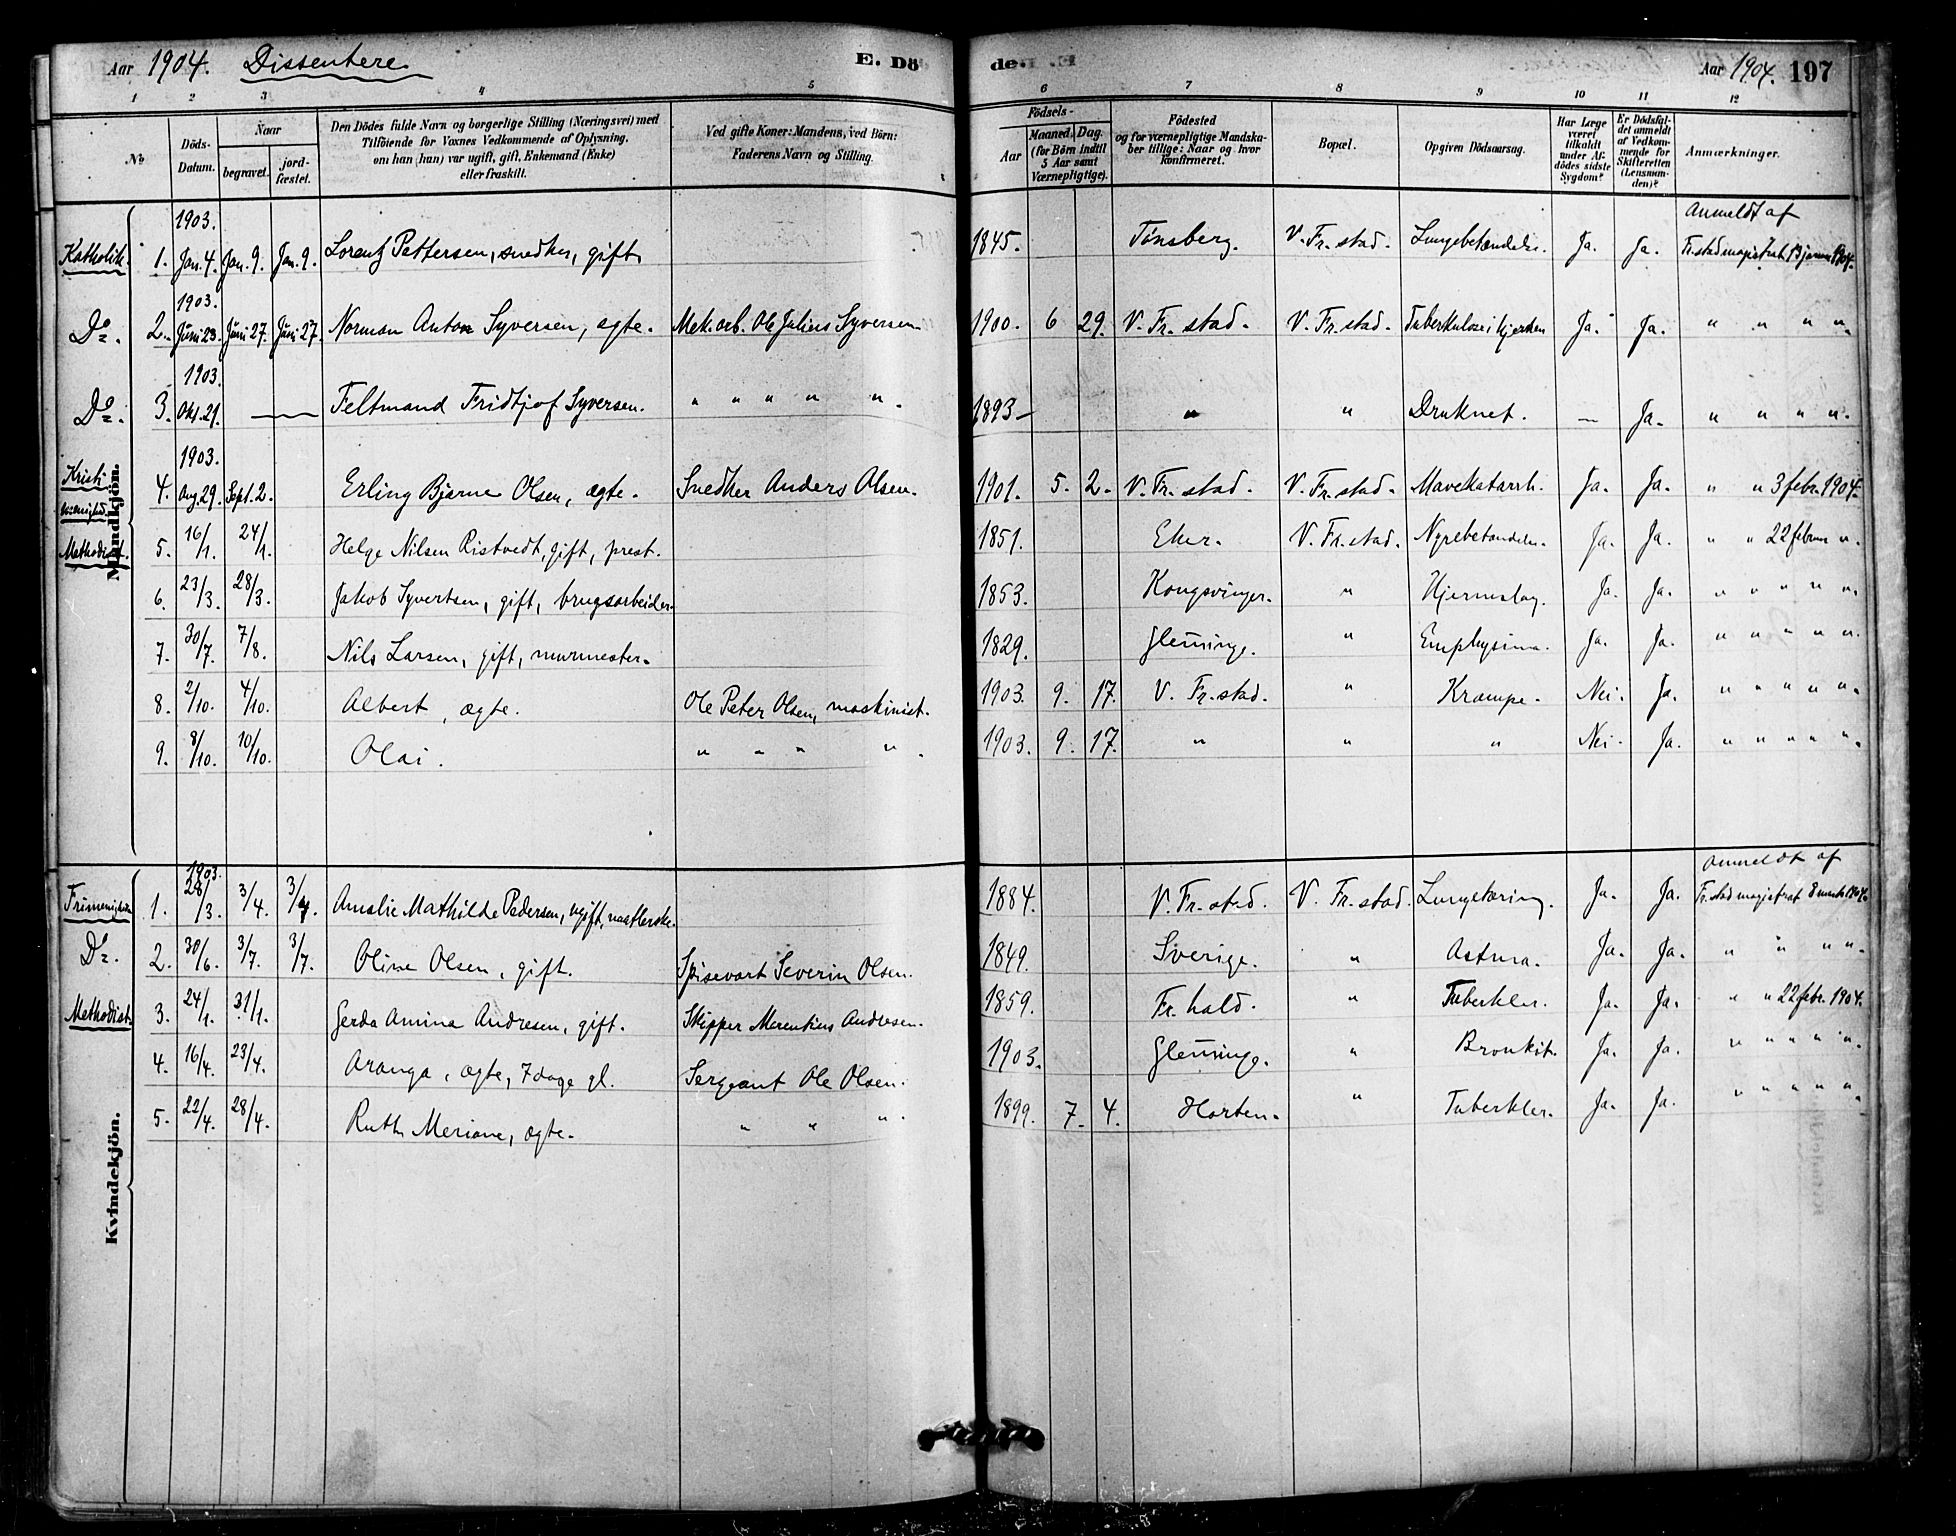 Aar 1904. Dissentere. E. Dö
de. Aar 1904. 197
1 2 3 4 5 6 7 8 9 10 11 12
No
Döds-Datum.
Naar
begravet.
jord-fæstet.
Den Dödes fulde Navn og borgerlige Stilling (Næringsvei) med
Tilföiende for Voxnes Vedkommende af Oplysning,
om han (hun) var ugift, gift, Enkemand (Enke)
eller fraskilt.
Ved gifte Koner: Mandens, ved Börn:
Faderens Navn og Stilling.
Födsels-
Aar
Maaned. Dag.
(for Börn indtil
5 Aar samt
Værnepligtige).
Födested
og for værnepligtige Mandska-
ber tillige: Naar og hvor
konfirmeret.
Bopæl.
Opgiven Dödsaarsag.
Har Læge
været
tilkaldt
under Af-
dödes sidste
Sygdom?
Er Dödsfal-
det anmeldt
af Vedkom-
mende for
Skifteretten
(Lensman-
den)?
Anmærkninger.
Mandkjön.
Katholik. 1. 1903. Jan. 4. Jan. 9. Jan. 9. Lorentz Pettersen, snedker, gift. 1845. Tönsberg. V. Fr.stad. Lungebetændelse. Ja. Ja. Anmeldt af Fr.stad magistrat 13 januar 1904.
Do. 2. 1903. Juni 23. Juni 27. Juni 27. Norman Anton Syversen, ægte. Mek. arb. Ole Julius Syversen. 1900. 6 29. V. Fr. stad. V. Fr. stad. Tuberkulose i hjerken Ja. Ja. " " " "
Do. 3. 1903. Okt. 21. — Feltmand Fridtjof Syversen. " " " " " 1893 — " " Druknet. — Ja. " " " "
Kristi menighed. 4. 1903. Aug. 29. Sept. 2. Erling Bjarne Olsen, ægte. Snedker Anders Olsen. 1901. 5. 2. V. Fr. stad. V. Fr. stad. Mavekatarrh. Ja. Ja. " " 3 febr. 1904.
Methodist. 5. 16/1. 24/1. Helge Nilsen Ristvedt, gift, prest. 1851. Eker. V. Fr. stad. Nyrebetændelse. Ja. Ja. " " 22 februar ".
6. 23/3. 28/3. Jakob Syvertsen, gift, brugsarbeider. 1853. Kongsvinger. " Hjerneslag. Ja. Ja. " " " " "
7. 30/7. 7/8. Nils Larsen, gift, murmester. 1829. Glemminge. " Emphysima. Ja. Ja. " " " " "
8. 2/10. 4/10. Albert, ægte. Ole Peter Olsen, maskinist. 1903. 9. 17. V. Fr. stad. " Krampe. Nei. Ja. " " " " "
9. 8/10. 10/10. Olai. " " " " 1903. 9. 17. " " " Nei. Ja. " " " " "
Kvindekjön.
1. 1903. 28/3. 3/4. 3/4. Amalie Mathilde Pedersen, ugift, 1884. V. Fr. stad. V. Fr. stad. Lungetæring. Ja. Ja. Anmeldt af Fr. stad magistrat 8 marts 1904.
Do. 2. 30/6. 3/7. 3/7. Oline Olsen, gift. Spisevert Severin Olsen. 1849. Sverige. " Astma. Ja. Ja. " " " "
Methodist. 3. 24/1. 31/1. Gerda Amina Andresen, gift. Skipper Merentius Andresen. 1859. Fr. hald. " Tuberkler. Ja. Ja. " " 22 febr. 1904.
4. 16/4. 23/4. Aranga, ægte, 7 dage gl. Sergeant Ole Olsen. 1903. Glemminge. " Bronkit. Ja. Ja. " " " " "
5. 22/4. 28/4. Ruth Meriane, ægte. " " " 1899. 7. 4. Horten. " Tuberkler. Ja. Ja. " " " " "